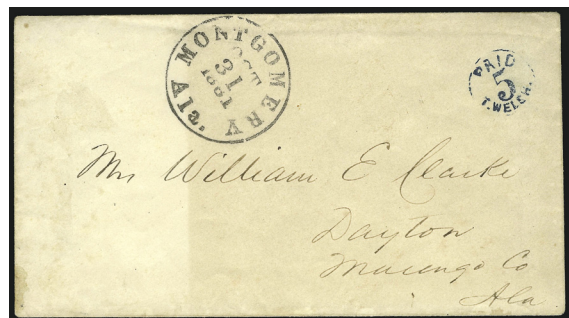 MONTGOMERY Ala.
OCT
31
1861
PAID
5
T. WELSH.
Mrs William E Clarke
Dayton
Marengo Co
Ala